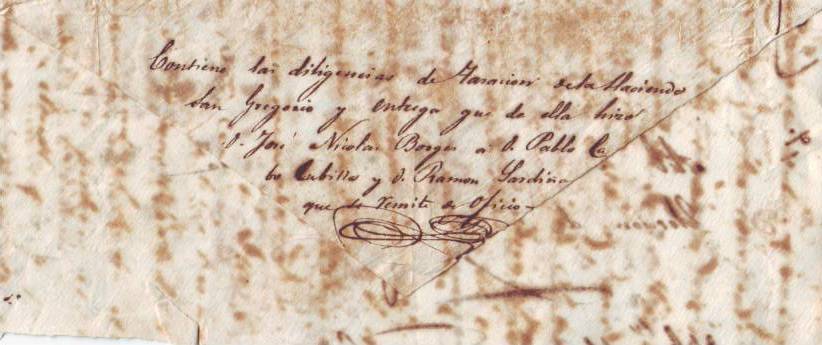 Contiene las diligencias de Tasacion de la Hacienda
San Gregorio y entrega que de ella hizo
D. José Nicolas Borges a D. Pablo Ca
bo Cubillo y D. Ramon Sardiña
que se remite de Oficio